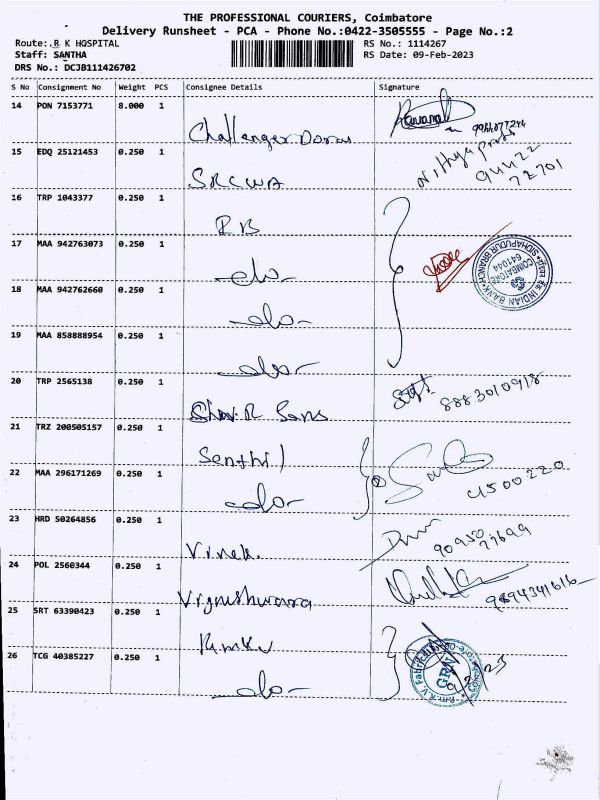 THE PROFESSIONAL COURIERS, Coimbatore
Delivery Runsheet - PCA - Phone No.:0422-3505555 - Page No.:2
Route:.R K HOSPITAL RS No.: 1114267
Staff: SANTHA RS Date: 09-Feb-2023
DRS No.: DCJB111426702
S No Consignment No Weight PCS Consignee Details Signature
14 PON 7153771 8.000 1
Challenger Doras
15 EDQ 25121453 0.250 1
SRCWA 94422
72701
16 TRP 1043377 0.250 1
R B
17 MAA 942763073 0.250 1
-do-
INDIAN BANK
SIDHAPUDUR BRANCH
COIMBATORE
641044
18 MAA 942762660 0.250 1
-do-
19 MAA 858888954 0.250 1
-do-
20 TRP 2565138 0.250 1
Sons 8883010918
21 TRZ 200505157 0.250 1
Senthil
22 MAA 296171269 0.250 1
-do- 4500220
23 HRD 50264856 0.250 1
Vivek. 90950
24 POL 2560344 0.250 1
Vignushwara 9894341616
25 SRT 63390423 0.250 1
26 TCG 40385227 0.250 1
GRN
-do- 9/2/23